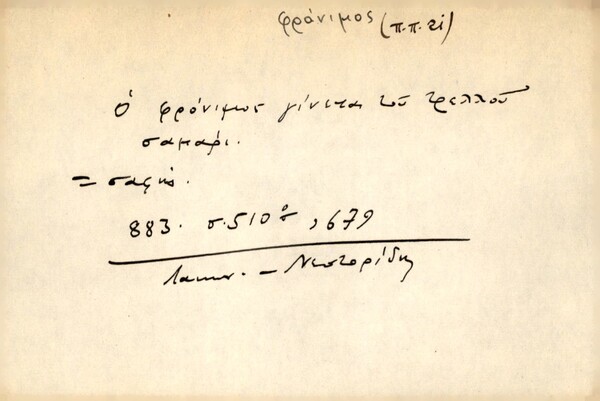 φρόνιμος (π.π. εί)
Ὁ φρόνιμος γίνεται τοῦ τρελλοῦ
σαμάρι.
= σαφής.
883. σ. 510 , 679
Λακων. - Νεστορίδη